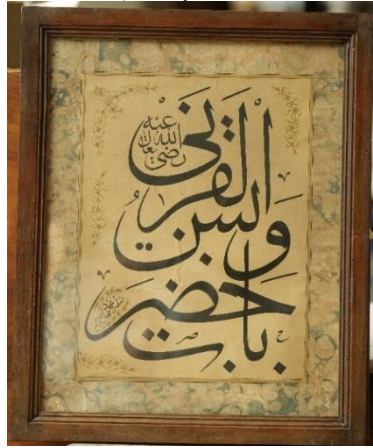 يا حضرت
ويس
القرنى
رضى الله تعالى عنه